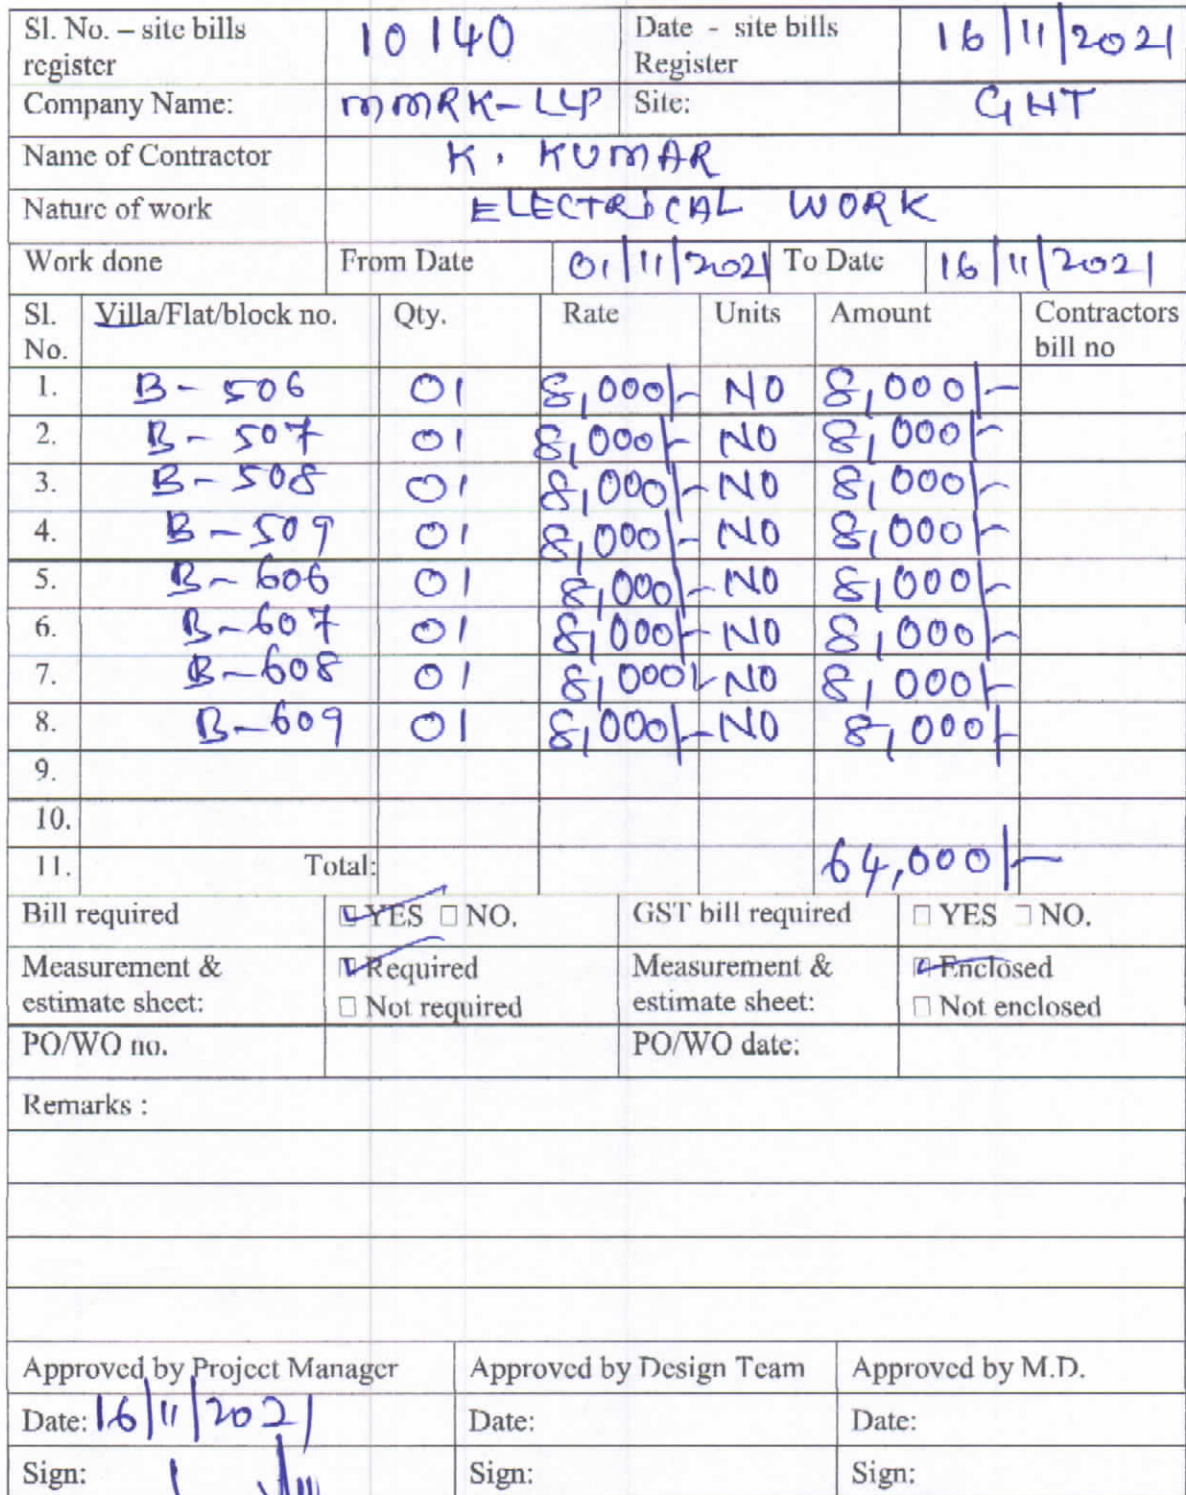 Sl. No. – site bills register 10140 Date - site bills Register 16/11/2021
Company Name: MMRK-LLP Site: GHT
Name of Contractor K. KUMAR
Nature of work ELECTRICAL WORK
Work done From Date 01/11/2021 To Date 16/11/2021
Sl. No. Villa/Flat/block no. Qty. Rate Units Amount Contractors bill no
1. B-506 01 8,000/- NO 8,000/-
2. B-507 01 8,000/- NO 8,000/-
3. B-508 01 8,000/- NO 8,000/-
4. B-509 01 8,000/- NO 8,000/-
5. B-606 01 8,000/- NO 8,000/-
6. B-607 01 8,000/- NO 8,000/-
7. B-608 01 8,000/- NO 8,000/-
8. B-609 01 8,000/- NO 8,000/-
9.
10.
11. Total: 64,000/-
Bill required YES NO. GST bill required YES NO.
Measurement & estimate sheet: Required Not required Measurement & estimate sheet: Enclosed Not enclosed
PO/WO no. PO/WO date:
Remarks :
Approved by Project Manager Approved by Design Team Approved by M.D.
Date: 16/11/2021 Date: Date:
Sign: Sign: Sign: